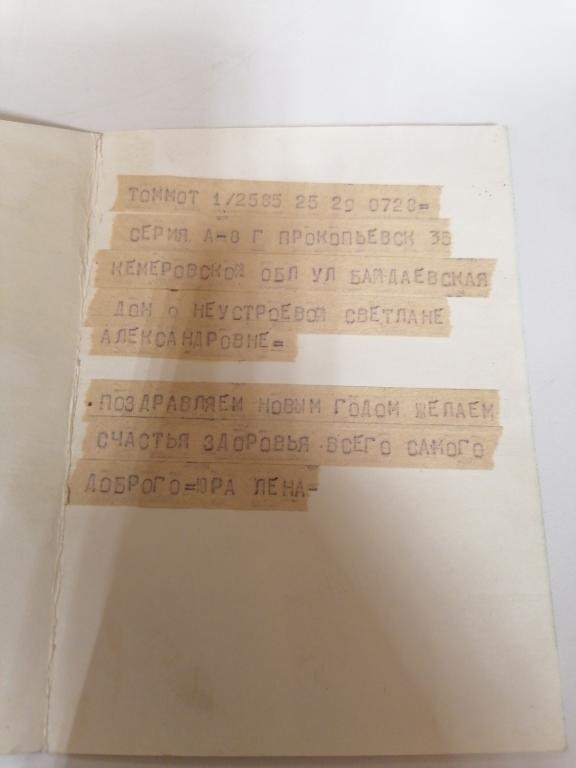 ТОММОТ 1/2585 25 29 0728=
СЕРИЯ А-8 Г ПРОКОПЬЕВСК 35
КЕМЕРОВСКОЙ ОБЛ УЛ БАЙДАЕВСКАЯ
ДОМ 9 НЕУСТРОЕВОЙ СВЕТЛАНЕ
АЛЕКСАНДРОВНЕ=
ПОЗДРАВЛЯЕМ НОВЫМ ГОДОМ ЖЕЛАЕМ
СЧАСТЬЯ ЗДОРОВЬЯ ВСЕГО САМОГО
ДОБРОГО=ЮРА ЛЕНА-